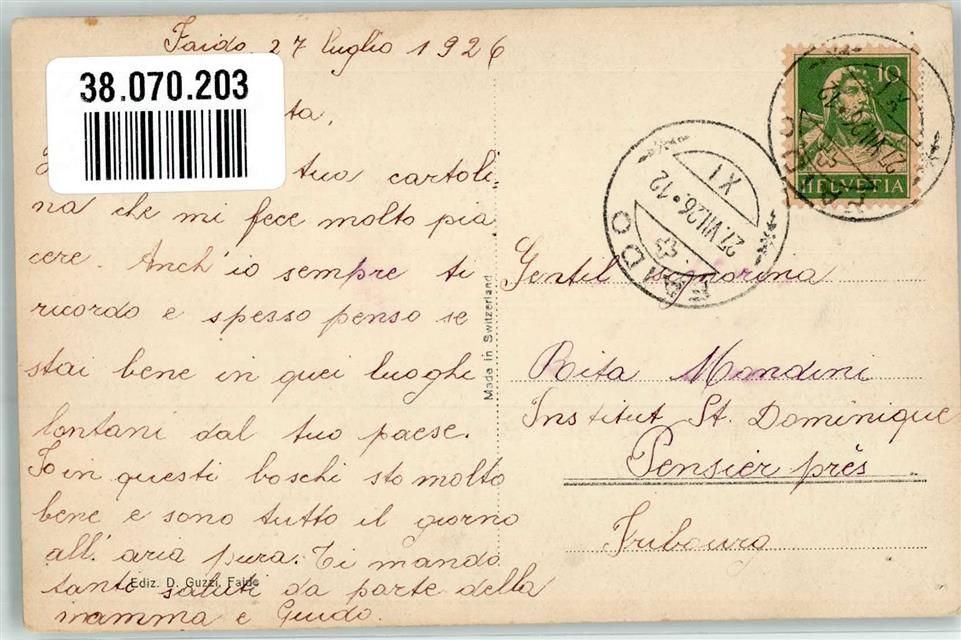 Faido, 27 luglio 1926
38.070.203
tua cartoli-
na che mi fece molto pia
cere. Anch'io sempre ti
ricordo e spesso penso se
stai bene in quei luoghi
lontani dal tuo paese.
Io in questi boschi sto molto
bene e sono tutto il giorno
all'aria pura. Ti mando
tanti saluti da parte della
mamma e Guido.
Ediz. D. Guzzi, Faido
Made in Switzerland
10
HELVETIA
FAIDO
27.VII.26.12
XI
Gentil signorina
Rita Mondini
Institut St. Dominique
Pensier près
Fribourg